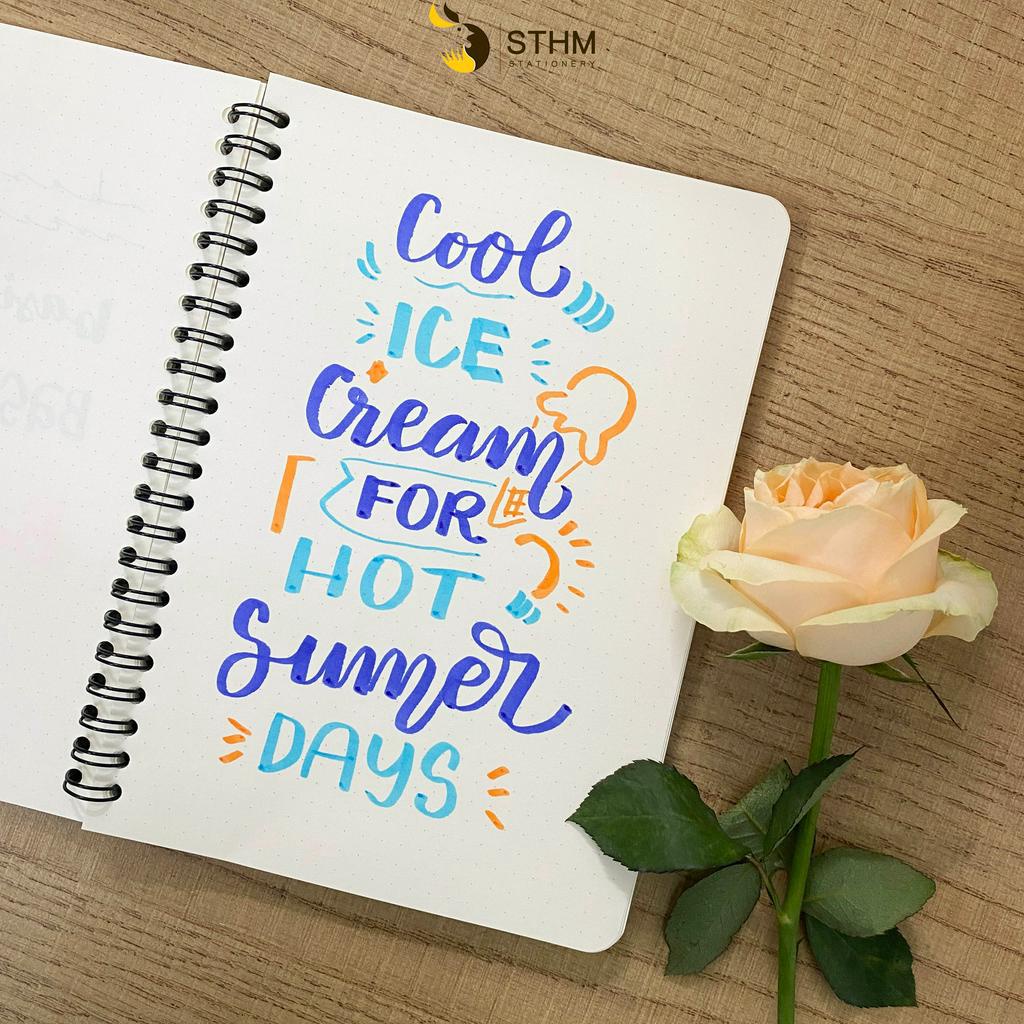 STHM
STATIONERY
Cool
ICE
Cream
FOR
HOT
Summer
DAYS